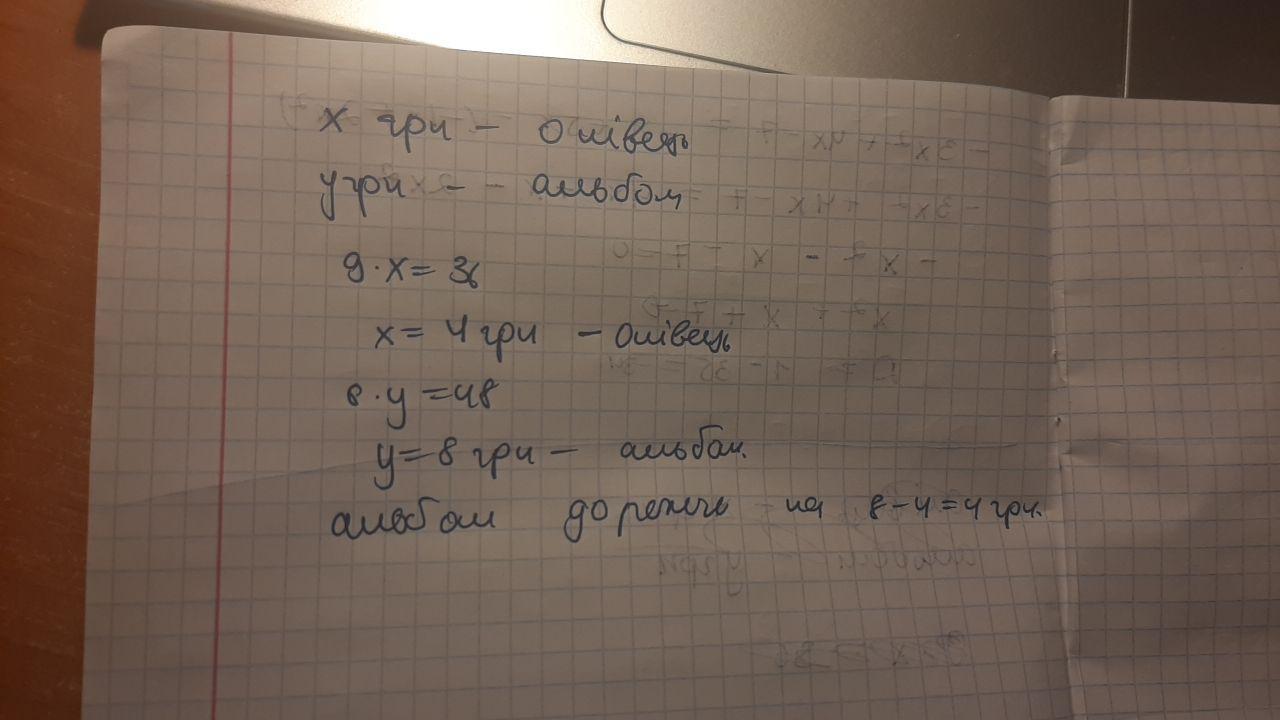 х грн - олівець
у грн - альбом
9·х=36
х=4 грн - олівець
8·у=48
у=8 грн - альбом.
альбом дорожче на 8-4=4 грн.